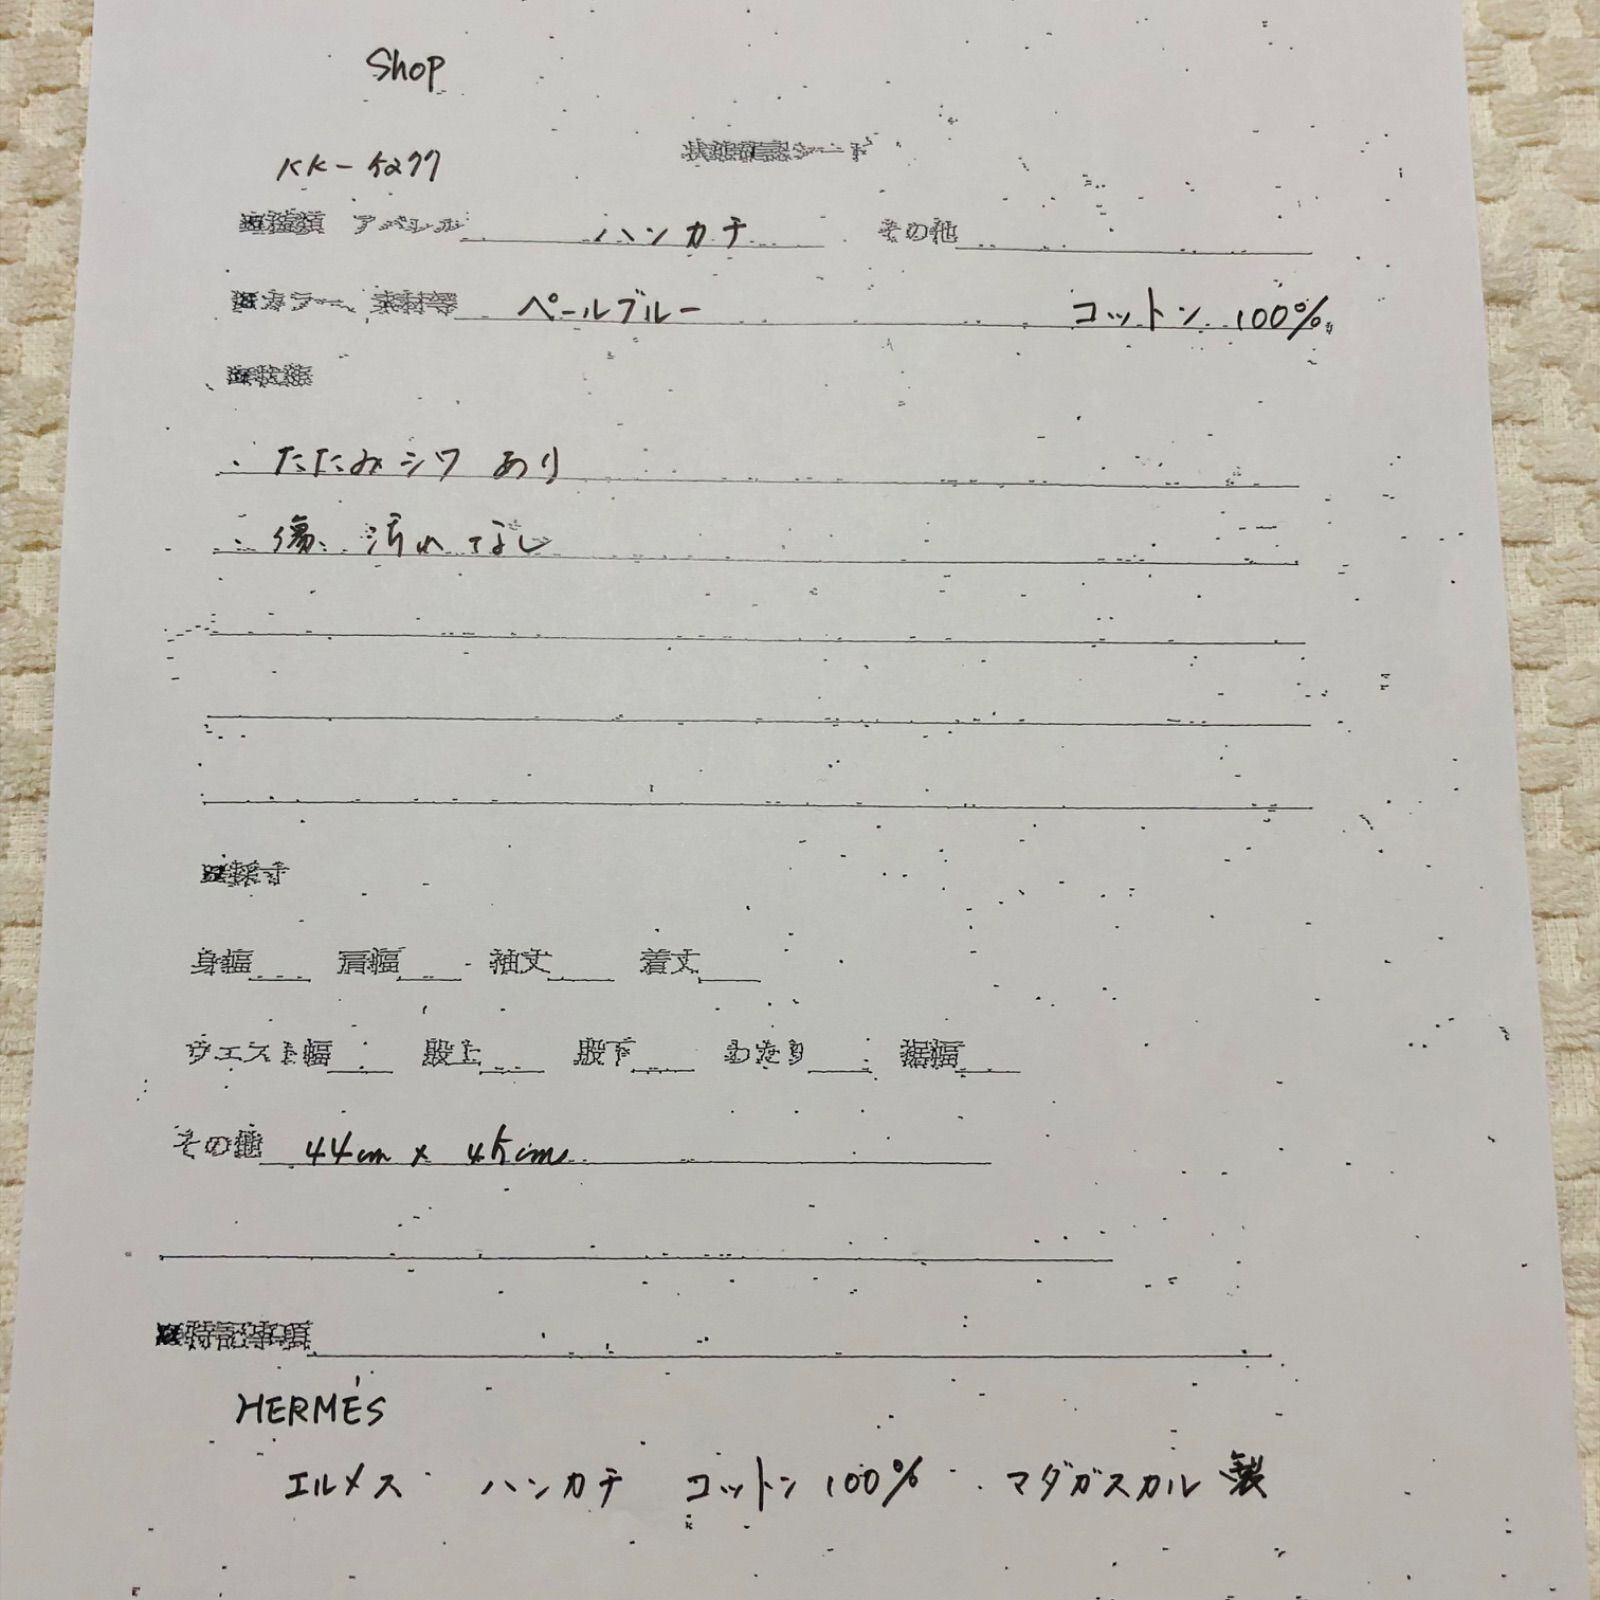 Shop
KK-5277
状態確認シート
■種類 アパレル ハンカチ その他
■カラー、素材等 ペールブルー コットン 100%
■状態
・たたみシワ あり
・傷、汚れ なし
■採寸
身幅 肩幅 袖丈 着丈
ウエスト幅 股上 股下 わたり 裾幅
その他 44cm x 45cm
■特記事項
HERMÉS
エルメス ハンカチ コットン 100% マダガスカル製